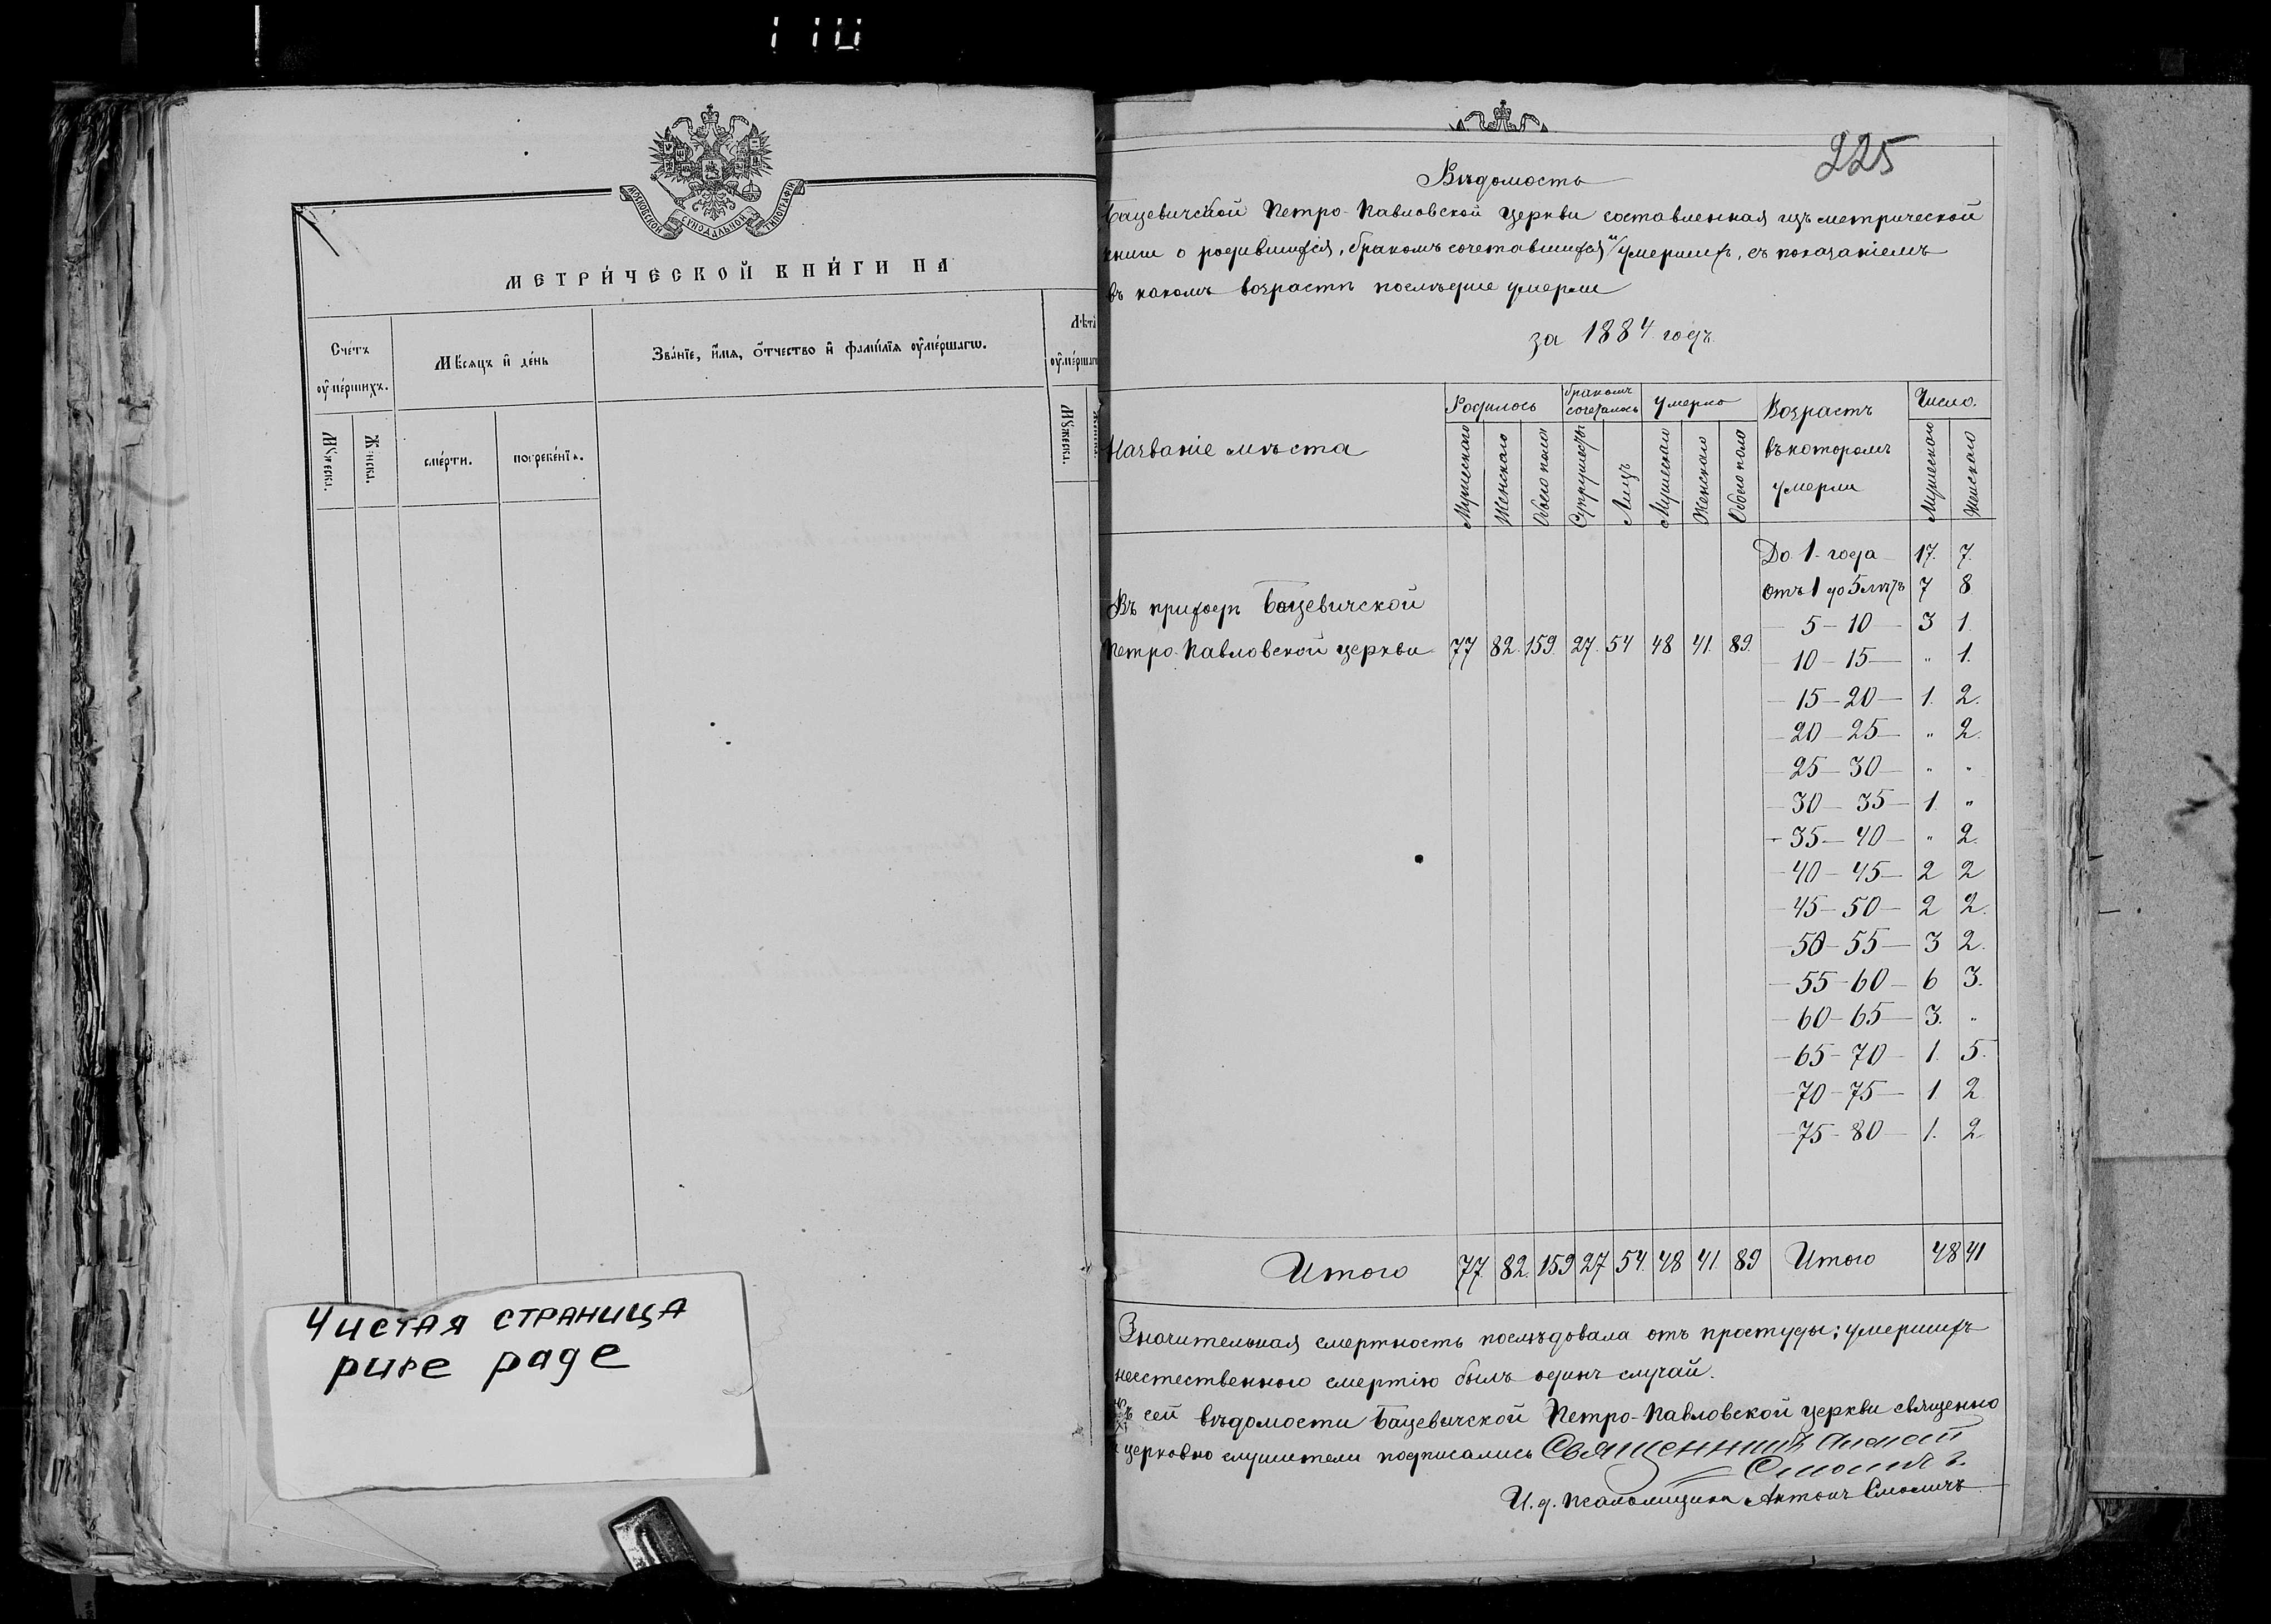 МОСКОВСКОЙ СУНОДАЛЬНОЙ ТИПОГРАФІИ
МЕТРИ́ЧЕСКОЙ КНИ́ГИ НА
Сче́тъ оу҆ме́ршихъ.
Мѣ́сяцъ и҆ де́нь
Зва́нїе, и҆́мя, ѻ҆́тчество и҆ фамѝлїя оу҆ме́ршагѡ.
Лѣта оу҆ме́ршаг
Мꙋ́жеска.
Же́нска.
сме́рти.
погребе́нїя.
Мꙋ́жеска.
Чистая страница
pure page
225
Вѣдомость
Бацевичской Петро-Павловской церкви составленная изъ метрической
книги о родившихся, бракомъ сочетавшихся и умершихъ, съ показаніемъ
въ какомъ возрастѣ послѣдніе умерли
за 1884 годъ.
Названіе мѣста
Родилось
бракомъ сочеталось
умерло
Возрастъ въ которомъ умерли
Число.
Мужескаго
Женскаго
Обоего пола
Супружествъ
Лицъ
Мужескаго
Женскаго
Обоего пола
Мужескаго
Женскаго
До 1 года 17. 7.
отъ 1 до 5 лѣтъ 7 8
Въ приходѣ Бацевичской
— 5 — 10 — 3 1
Петро-Павловской церкви 77 82. 159. 27. 54 48 41. 89.
— 10 — 15 — " 1.
— 15 — 20 — 1. 2.
— 20 — 25 — " 2.
— 25 — 30 — " "
— 30 — 35 — 1. "
— 35 — 40 — " 2.
— 40 — 45 — 2 2
— 45 — 50 — 2 2.
— 50 — 55 — 3 2.
— 55 — 60 — 6 3.
— 60 — 65 — 3. "
— 65 — 70 — 1. 5.
— 70 — 75 — 1 2
— 75 — 80 — 1. 2
Итого 77. 82. 159 27 54. 48 41. 89 Итого 48 41
Значительная смертность послѣдовала отъ простуды; умершихъ
неестественною смертію былъ одинъ случай.
сей вѣдомости Бацевичской Петро-Павловской церкви священно
церковно служители подписались Священникъ Алексѣй
Смоличъ.
И. д. псаломщика Антонъ Смоличъ